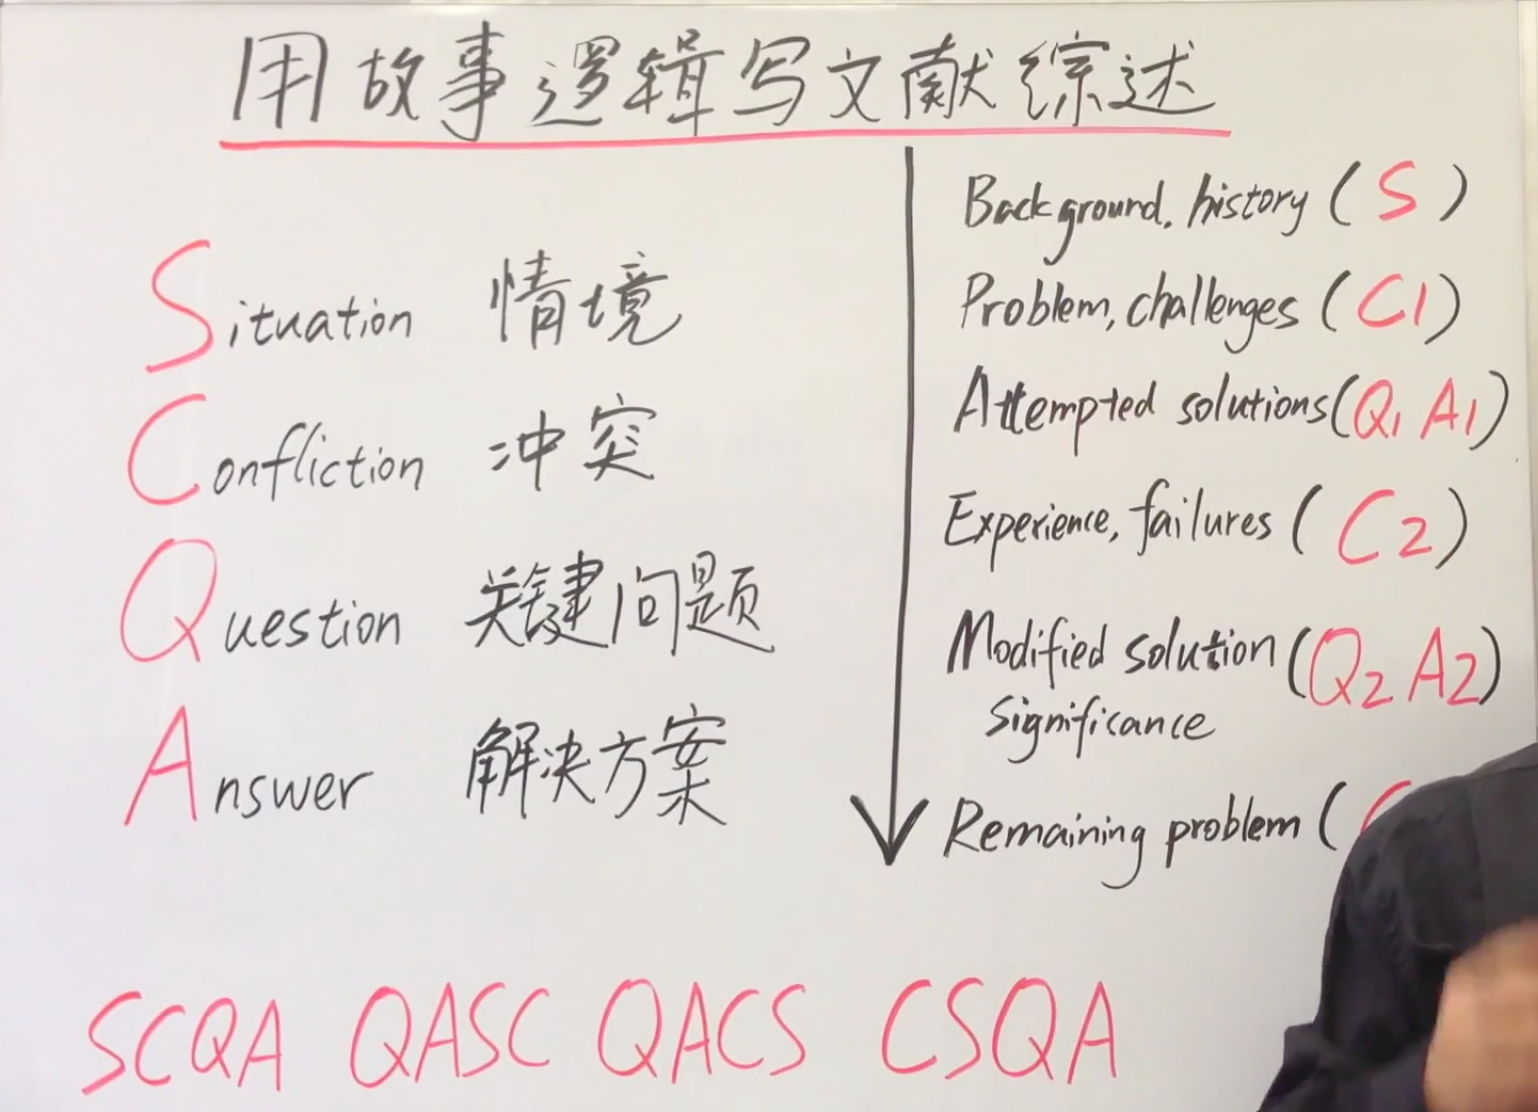 用故事逻辑写文献综述
Situation 情境
Confliction 冲突
Question 关键问题
Answer 解决方案
Background, history (S)
Problem, challenges (C1)
Attempted solutions (Q1 A1)
Experience, failures (C2)
Modified solution (Q2 A2)
significance
Remaining problem (
SCQA QASC QACS CSQA